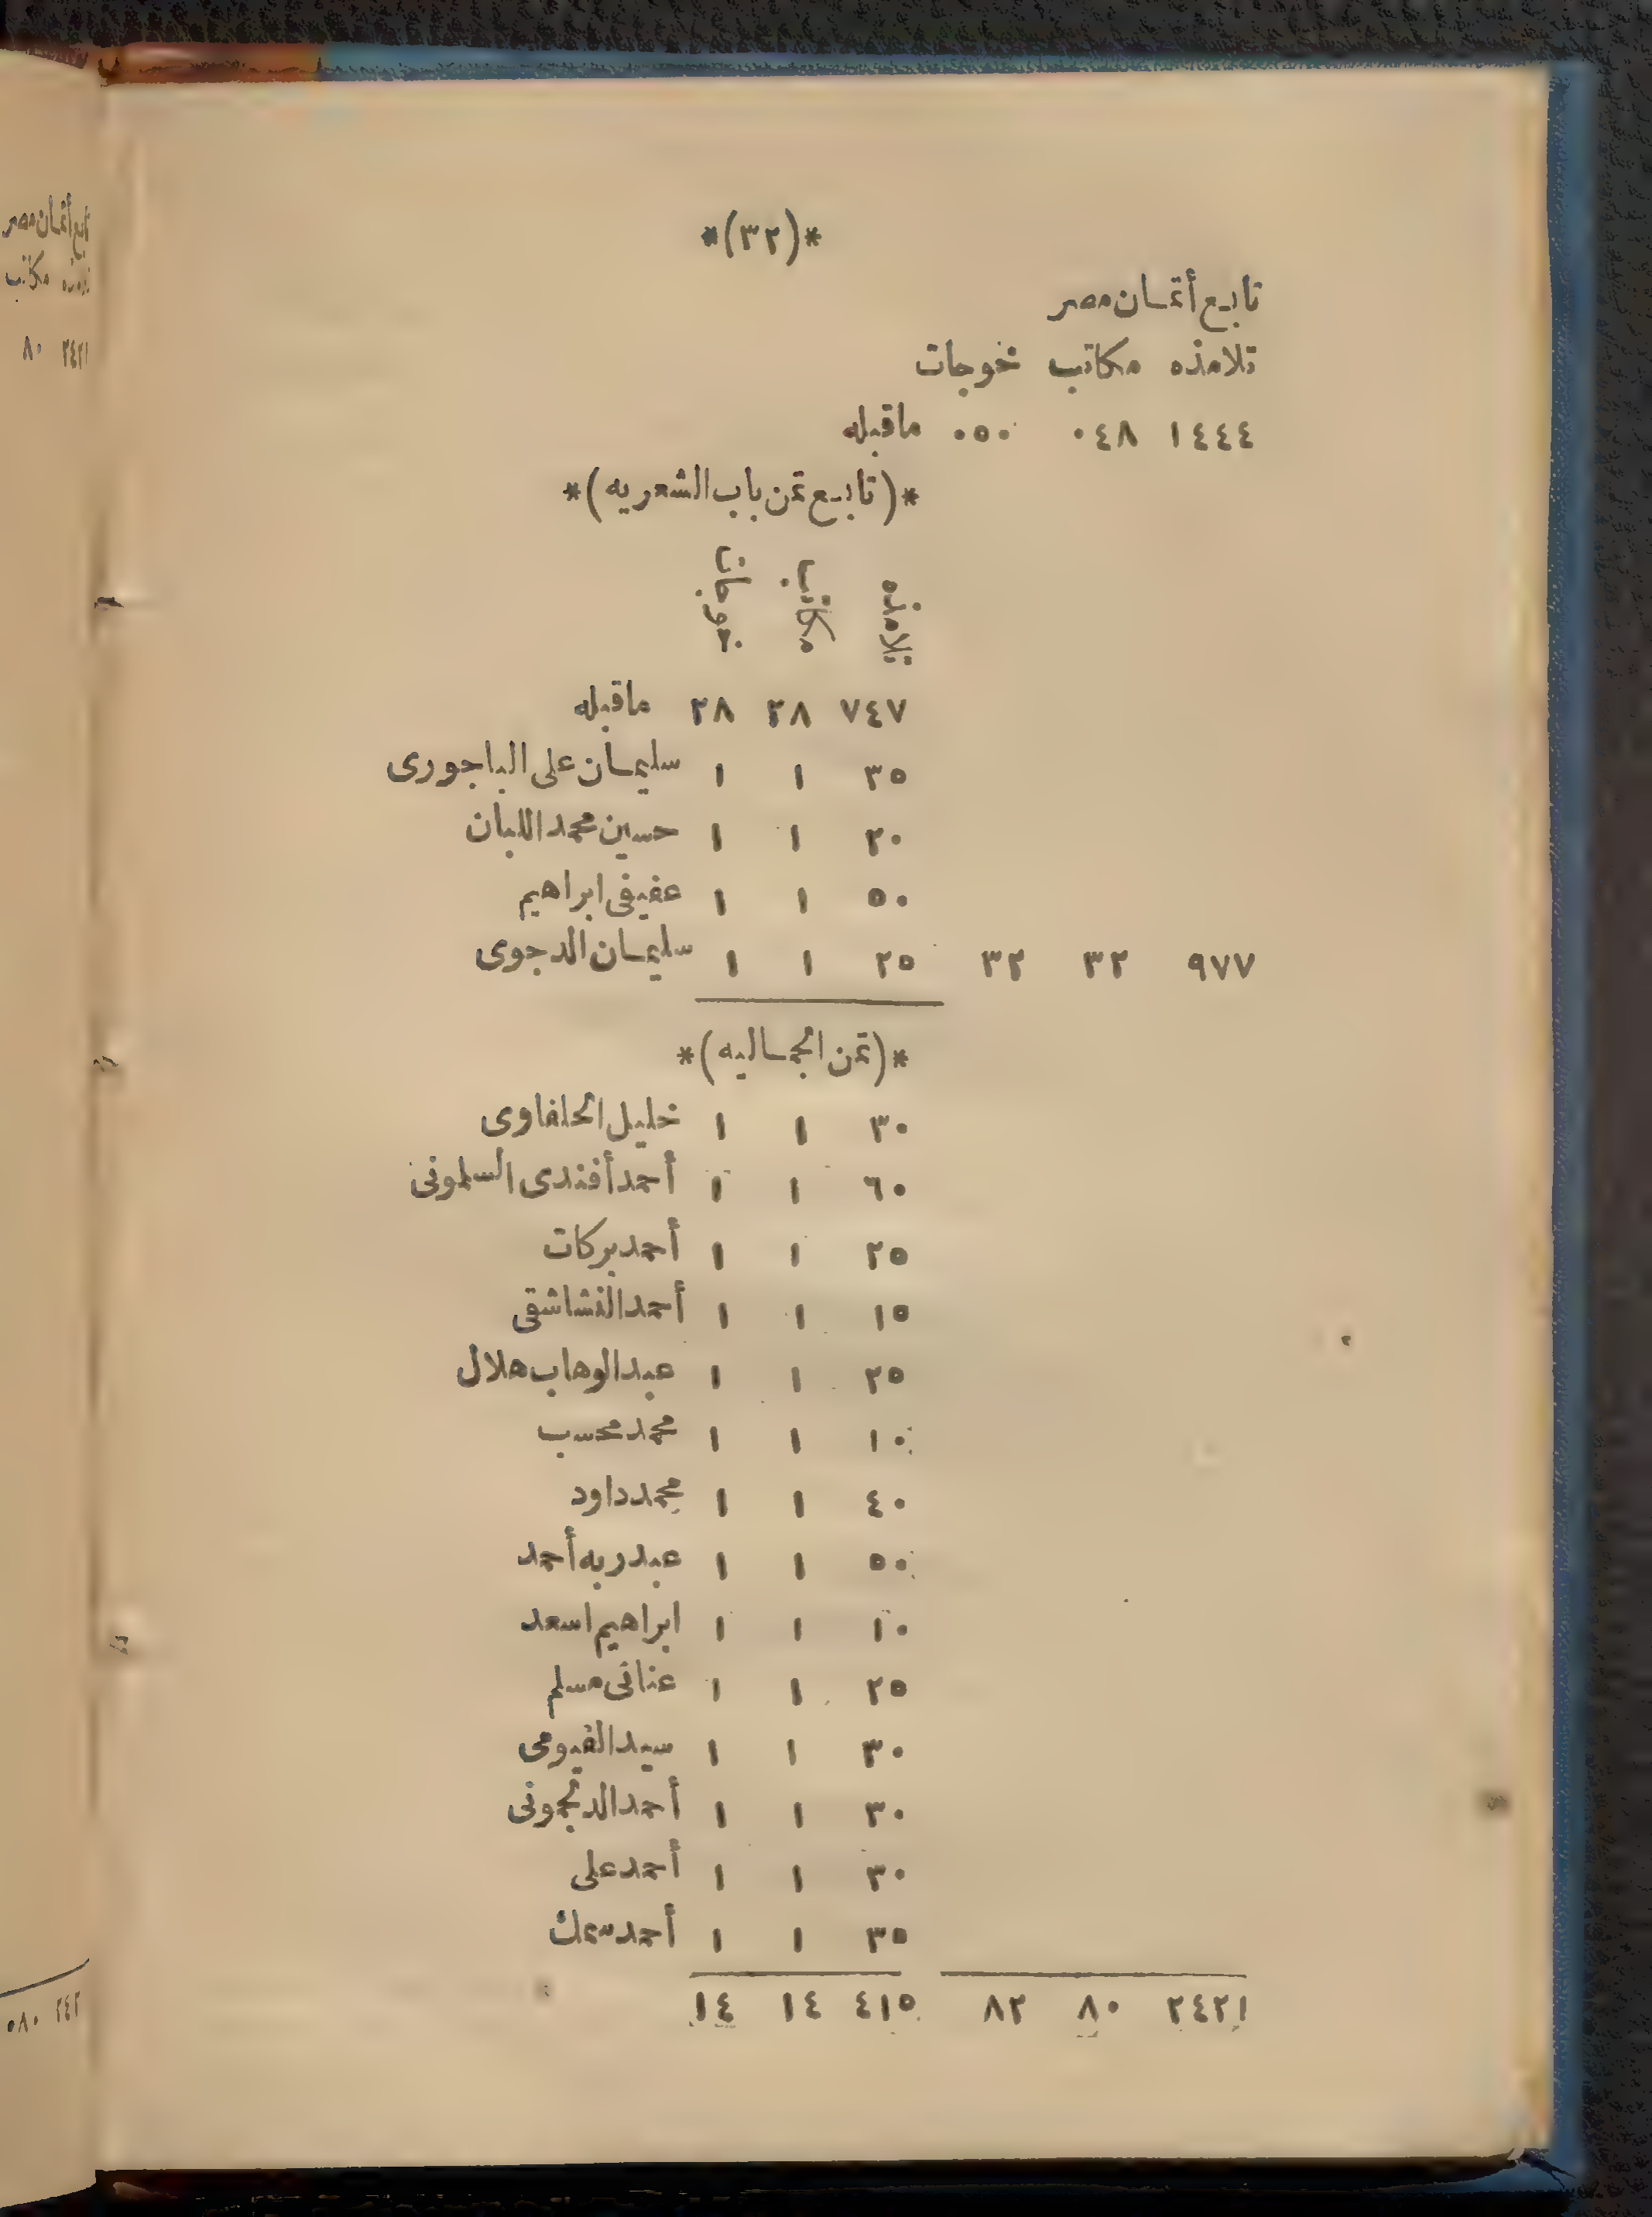 *(٣٢)*
تابع أثمان مصر
تلامذه مكاتب خوجات
١٤٤٤ ٠٤٨ ٠٥٠ ماقبله
*(تابع ثمن باب الشعريه)*
تلامذه مكاتب خوجات
٧٤٧ ٢٨ ٢٨ ماقبله
٣٥ ١ ١ سليمان على الباجورى
٢٠ ١ ١ حسين محمد اللبان
٥٠ ١ ١ عفيفى ابراهيم
٩٧٧ ٣٢ ٣٢ ٢٥ ١ ١ سليمان الدجوى
*(ثمن الجماليه)*
٣٠ ١ ١ خليل الحلفاوى
٦٠ ١ ١ أحمد أفندى السلمونى
٢٥ ١ ١ أحمد بركات
١٥ ١ ١ أحمد النشاشقى
٢٥ ١ ١ عبد الوهاب هلال
١٠ ١ ١ محمد محسب
٤٠ ١ ١ محمد داود
٥٠ ١ ١ عبد ربه أحمد
١٠ ١ ١ ابراهيم اسعد
٢٥ ١ ١ عنانى مسلم
٣٠ ١ ١ سيد الفيومى
٣٠ ١ ١ أحمد الدلجمونى
٣٠ ١ ١ أحمد على
٣٥ ١ ١ أحمد سمك
٢٤٢١ ٨٠ ٨٢ ٤١٥ ١٤ ١٤
أثمان مصر
مكاتب
٢٤٢١ ٨٠